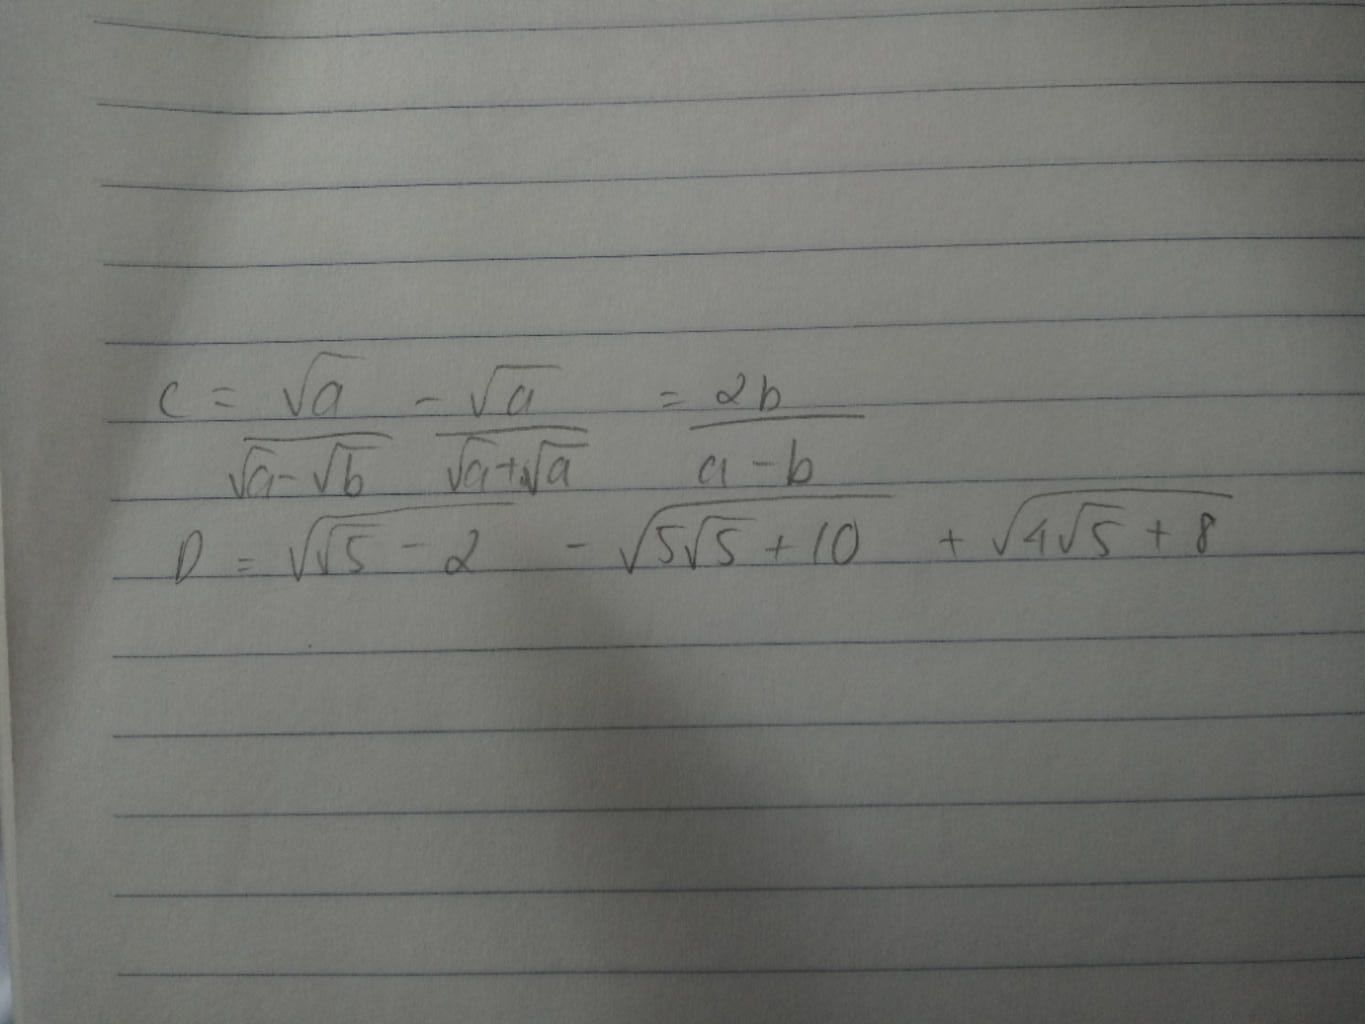 C = √a / (√a - √b) - √a / (√a + √a) = 2b / (a - b)
D = √(√5 - 2) - √(5√5 + 10) + √(4√5 + 8)